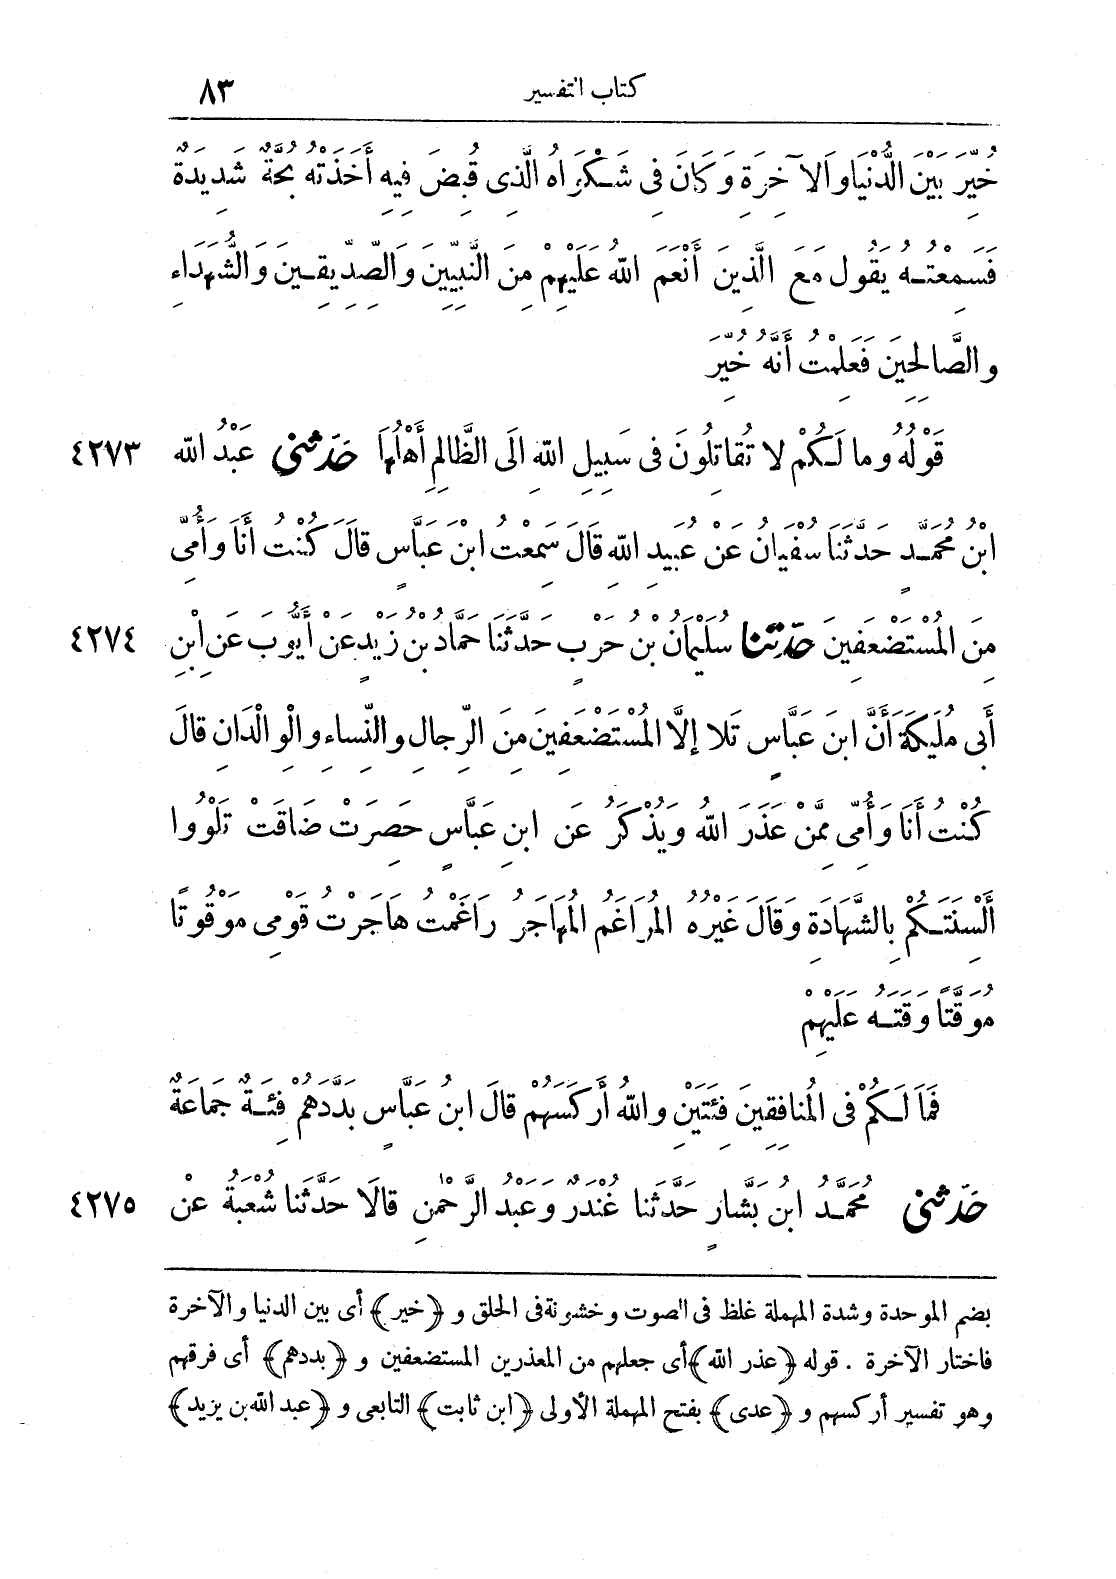 كتاب التفسير ٨٣
خُيِّرَ بَيْنَ الدُّنْيَا وَالآخِرَةِ وَكَانَ فِى شَكْوَاهُ الَّذِى قُبِضَ فِيهِ أَخَذَتْهُ بُحَّةٌ شَدِيدَةٌ
فَسَمِعْتُهُ يَقُولُ مَعَ الَّذِينَ أَنْعَمَ اللهُ عَلَيْهِمْ مِنَ النَّبِيِّينَ وَالصِّدِّيقِينَ وَالشُّهَدَاءِ
وَالصَّالِحِينَ فَعَلِمْتُ أَنَّهُ خُيِّرَ
قَوْلُهُ وما لَكُمْ لا تُقاتِلُونَ فى سَبِيلِ اللهِ إِلَى الظَّالِمِ أَهْلُهَا حَدَّثَنِى عَبْدُ الله ٤٢٧٣
ابْنُ مُحَمَّدٍ حَدَّثَنَا سُفْيَانُ عَنْ عُبَيْدِ اللهِ قَالَ سَمِعْتُ ابْنَ عَبَّاسٍ قالَ كُنْتُ أَنَا وَأُمِّى
مِنَ الْمُسْتَضْعَفِينَ حَدَّثَنَا سُلَيْمَانُ بْنُ حَرْبٍ حَدَّثَنَا حَمَّادُ بْنُ زَيْدٍ عَنْ أَيُّوبَ عَنِ ابْنِ ٤٢٧٤
أَبِى مُلَيْكَةَ أَنَّ ابنَ عَبَّاسٍ تَلا إِلَّا الْمُسْتَضْعَفِينَ مِنَ الرِّجالِ والنِّساءِ والْوِالْدَانِ قالَ
كُنْتُ أَنَا وَأُمِّى مِمَّنْ عَذَرَ اللهُ ويُذْكَرُ عَنِ ابنِ عَبَّاسٍ حَصِرَتْ ضَاقَتْ تَلْوُوا
أَلْسِنَتَكُمْ بِالشَّهَادَةِ وَقَالَ غَيْرُهُ الْمُرَاغَمُ الْمُهَاجَرُ رَاغَمْتُ هَاجَرْتُ قَوْمِى مَوْقُوتًا
مُوَقَّتًا وَقَتَهُ عَلَيْهِمْ
فَمَا لَكُمْ فى الْمُنافِقِينَ فِئَتَيْنِ واللهُ أَرْكَسَهُمْ قالَ ابنُ عَبَّاسٍ بَدَّدَهُمْ فِئَةٌ جَمَاعَةٌ
حَدَّثَنِى مُحَمَّدُ ابنُ بَشَّارٍ حَدَّثَنا غُنْدَرٌ وَعَبْدُ الرَّحْمٰنِ قالَا حَدَّثَنا شُعْبَةُ عَنْ ٤٢٧٥
بضم الموحدة وشدة المهملة غلظ فى الصوت وخشونة فى الحلق و ﴿خير﴾ أى بين الدنيا والآخرة
فاختار الآخرة . قوله ﴿عذر الله﴾ أى جعلهم من المعذرين المستضعفين و ﴿بددهم﴾ أى فرقهم
وهو تفسير أركسهم و ﴿عدى﴾ بفتح المهملة الأولى ﴿ابن ثابت﴾ التابعى و ﴿عبد الله بن يزيد﴾